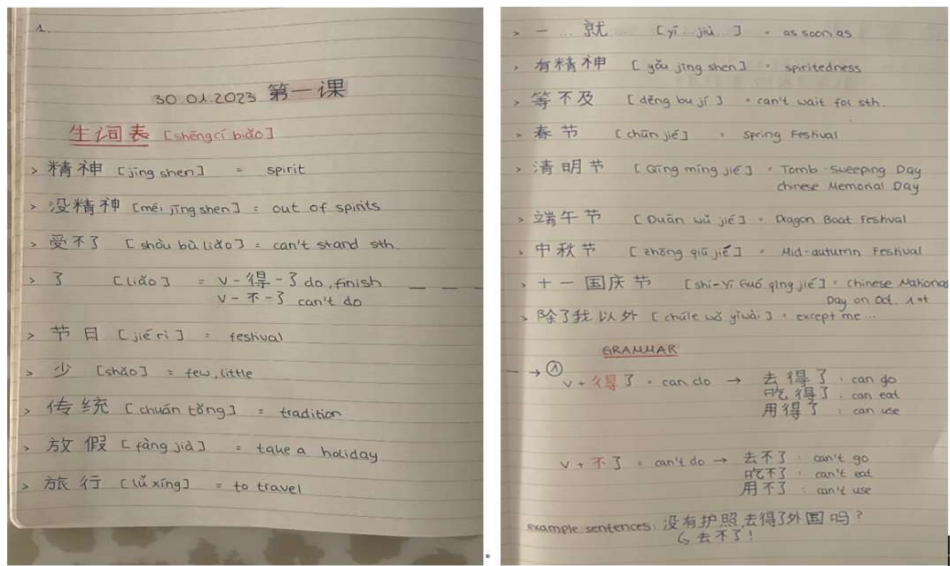 1.
30.01.2023 第一课
生词表 [shēngcí biǎo]
> 精神 [jīng shen] = spirit
> 没精神 [méi jīng shen] = out of spirits
> 受不了 [shòu bù liǎo] = can't stand sth.
> 了 [liǎo] = v - 得 - 了 do, finish
v - 不 - 了 can't do
> 节日 [jié rì] = festival
> 少 [shǎo] = few, little
> 传统 [chuán tǒng] = tradition
> 放假 [fàng jià] = take a holiday
> 旅行 [lǚ xíng] = to travel
> 一 ... 就 ... [yī ... jiù ...] = as soon as
> 有精神 [yǒu jīng shen] = spiritedness
> 等不及 [děng bu jí] = can't wait for sth.
> 春节 [chūn jié] = Spring Festival
> 清明节 [Qīng míng jié] = Tomb-Sweeping Day
Chinese Memorial Day
> 端午节 [Duān wǔ jié] = Dragon Boat Festival
> 中秋节 [zhōng qiū jié] = Mid-autumn Festival
> 十一国庆节 [shí-yī Guó qìng jié] = Chinese National
Day on Oct. 1st
> 除了我以外 [chúle wǒ yǐwài] = except me...
GRAMMAR
→ ① v + 得了 = can do → 去得了 : can go
吃得了 : can eat
用得了 : can use
v + 不了 = can't do → 去不了 : can't go
吃不了 : can't eat
用不了 : can't use
example sentences: 没有护照,去得了外国吗?
↳ 去不了!